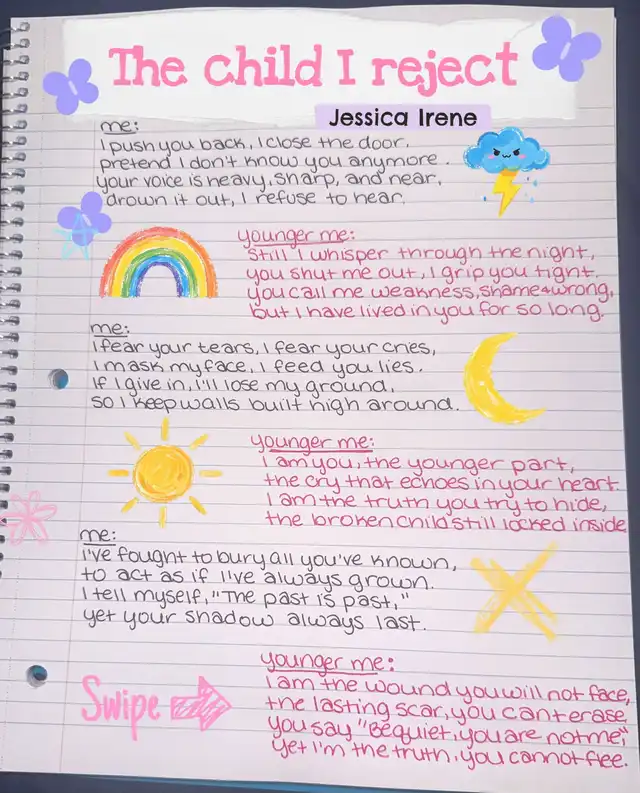 The child I reject
Jessica Irene
me:
I push you back, I close the door.
pretend I don't know you anymore.
your voice is heavy, sharp, and near,
drown it out, I refuse to hear.
younger me:
Still I whisper through the night,
you shut me out, I grip you tight.
you call me weakness, shame+wrong,
but I have lived in you for so long.
me:
I fear your tears, I fear your cries,
I mask my face, I feed you lies.
If I give in, I'll lose my ground,
so I keep walls built high around.
younger me:
I am you, the younger part,
the cry that echoes in your heart.
I am the truth you try to hide,
the broken child still locked inside
me:
I've fought to bury all you've known,
to act as if I've always grown.
I tell myself, "The past is past,"
yet your shadow always last.
younger me:
I am the wound you will not face,
the lasting scar, you cant erase
you say "Be quiet, you are not me,"
yet I'm the truth, you cannot flee.
Swipe